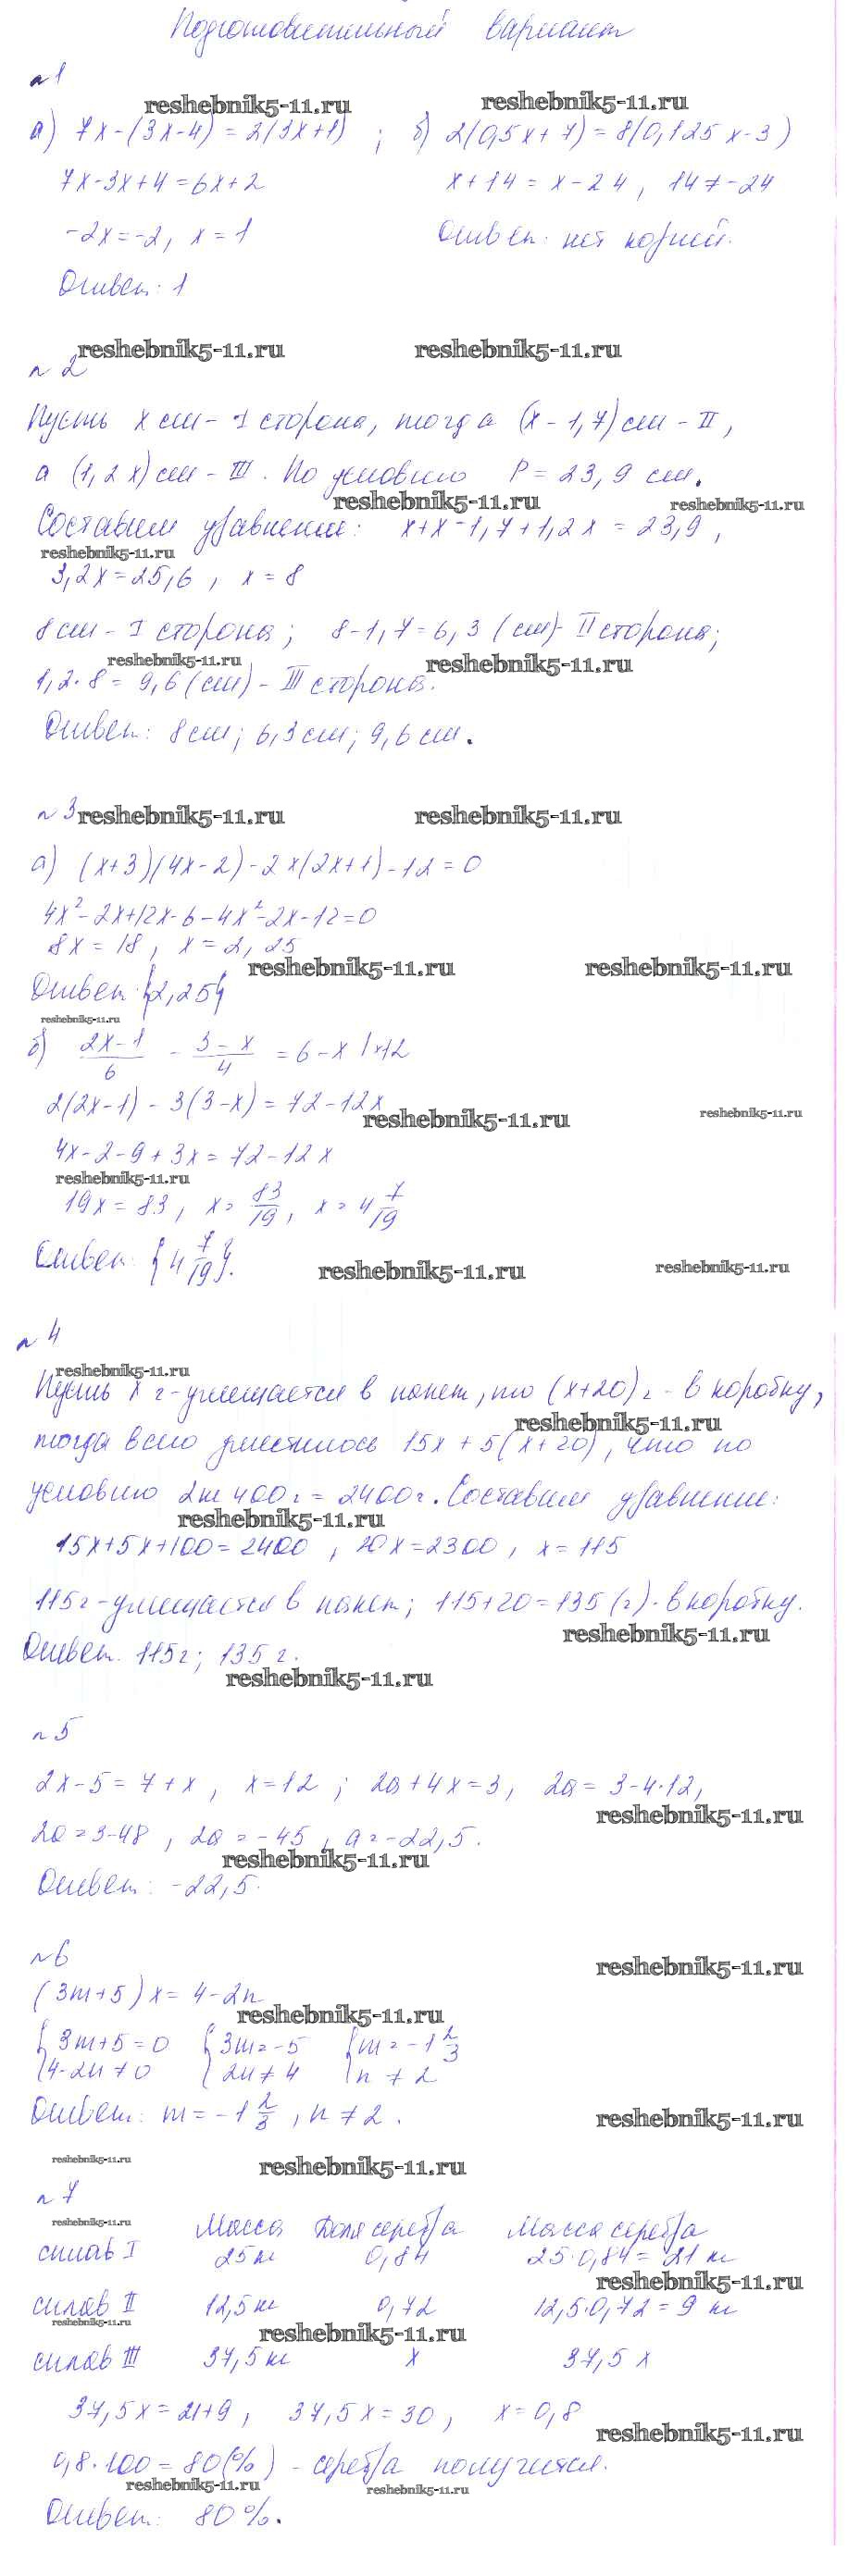 Подготовительный вариант
№1
reshebnik5-11.ru reshebnik5-11.ru
а) 7x-(3x-4)=2(3x+1) ; б) 2(0,5x+7)=8(0,125x-3)
7x-3x+4=6x+2 x+14=x-24, 14≠-24
-2x=-2, x=1 Ответ: нет корней.
Ответ: 1
reshebnik5-11.ru reshebnik5-11.ru
№2
Пусть x см - I сторона, тогда (x-1,7) см - II,
а (1,2x) см - III. По условию P=23,9 см.
reshebnik5-11.ru reshebnik5-11.ru
Составим уравнение: x+x-1,7+1,2x=23,9,
reshebnik5-11.ru
3,2x=25,6, x=8
8 см - I сторона; 8-1,7=6,3 (см)- II сторона;
reshebnik5-11.ru reshebnik5-11.ru
1,2·8=9,6 (см) - III сторона.
Ответ: 8 см; 6,3 см; 9,6 см.
№3 reshebnik5-11.ru reshebnik5-11.ru
а) (x+3)(4x-2)-2x(2x+1)-12=0
4x²-2x+12x-6-4x²-2x-12=0
8x=18, x=2,25
reshebnik5-11.ru reshebnik5-11.ru
Ответ: {2,25}
reshebnik5-11.ru
б) (2x-1)/6 - (3-x)/4 = 6-x |×12
2(2x-1)-3(3-x)=72-12x
reshebnik5-11.ru reshebnik5-11.ru
4x-2-9+3x=72-12x
reshebnik5-11.ru
19x=83, x=83/19, x=4 7/19
Ответ: {4 7/19}.
reshebnik5-11.ru reshebnik5-11.ru
№4
reshebnik5-11.ru
Пусть x г-умещается в пакет, то (x+20) г - в коробку,
reshebnik5-11.ru
тогда всего уместилось 15x+5(x+20), что по
условию 2кг 400г=2400г. Составим уравнение:
reshebnik5-11.ru
15x+5x+100=2400, 20x=2300, x=115
115г-умещается в пакет; 115+20=135 (г)-в коробку.
reshebnik5-11.ru
Ответ. 115г; 135 г.
reshebnik5-11.ru
№5
2x-5=7+x, x=12; 2a+4x=3, 2a=3-4·12,
reshebnik5-11.ru
2a=3-48, 2a=-45, a=-22,5.
reshebnik5-11.ru
Ответ: -22,5.
№6
reshebnik5-11.ru
(3m+5)x=4-2n
reshebnik5-11.ru
{3m+5=0 {3m=-5 {m=-1 2/3
{4-2n≠0 {2n≠4 {n≠2
Ответ: m=-1 2/3, n≠2.
reshebnik5-11.ru
reshebnik5-11.ru reshebnik5-11.ru
№7
reshebnik5-11.ru
Масса Доля серебра Масса серебра
сплав I 25кг 0,84 25·0,84=21 кг
reshebnik5-11.ru
сплав II 12,5кг 0,72 12,5·0,72=9 кг
reshebnik5-11.ru reshebnik5-11.ru
сплав III 37,5кг x 37,5 x
37,5x=21+9, 37,5x=30, x=0,8
reshebnik5-11.ru
0,8·100=80(%) - серебра получится.
reshebnik5-11.ru reshebnik5-11.ru
Ответ: 80%.